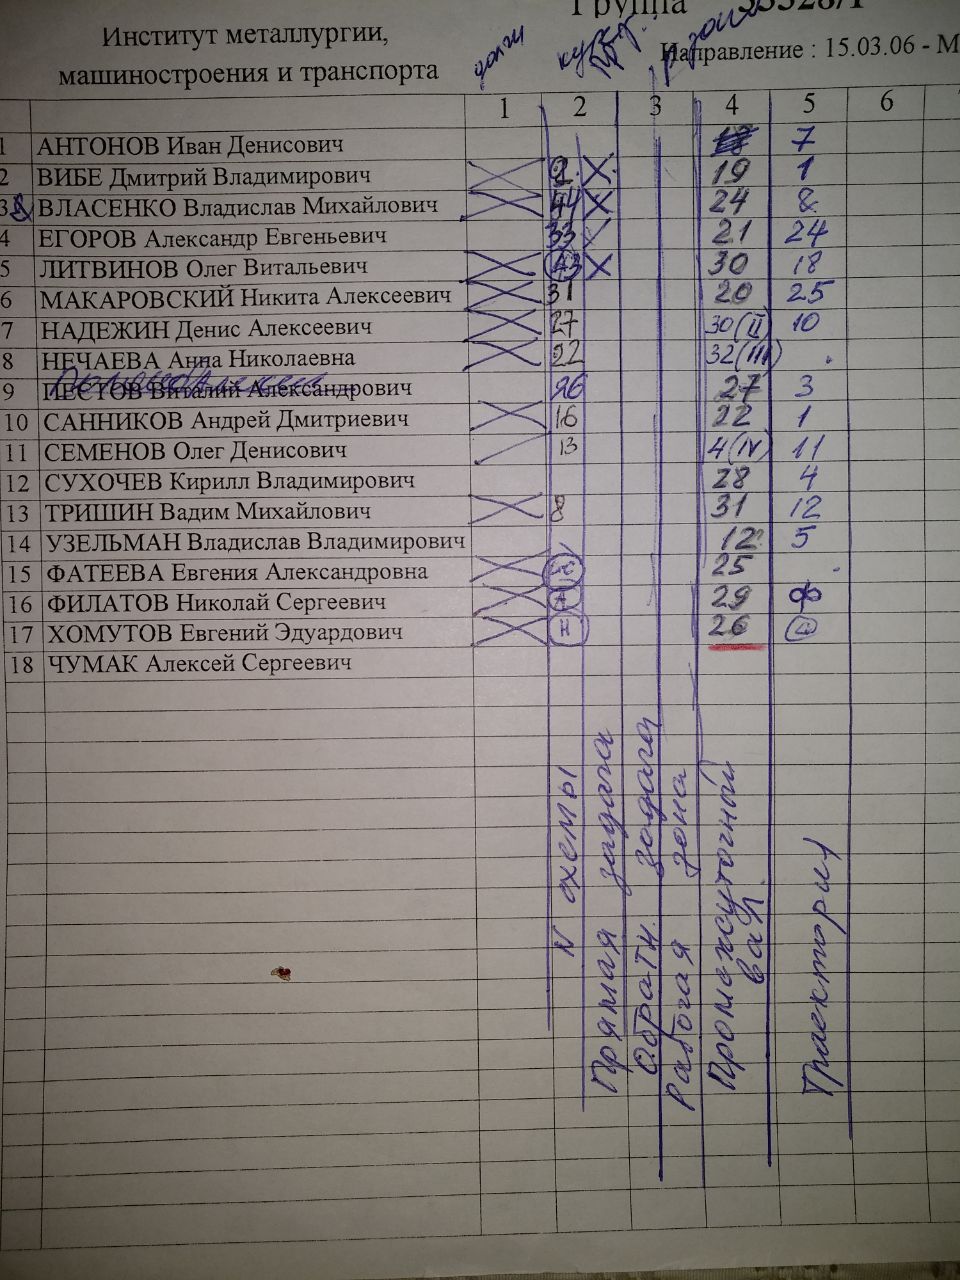 Группа 33328/1
Институт металлургии,
машиностроения и транспорта
Направление : 15.03.06 - М
долги
1 2 3 4 5 6
1 АНТОНОВ Иван Денисович 7
2 ВИБЕ Дмитрий Владимирович 2. X 19 1
3 ВЛАСЕНКО Владислав Михайлович 44 X 24 8
4 ЕГОРОВ Александр Евгеньевич 33 21 24
5 ЛИТВИНОВ Олег Витальевич X 30 18
6 МАКАРОВСКИЙ Никита Алексеевич 31 20 25
7 НАДЕЖИН Денис Алексеевич 27 30(II) 10
8 НЕЧАЕВА Анна Николаевна 22 32(III)
9 ПЕСТОВ Виталий Александрович 26 27 3
10 САННИКОВ Андрей Дмитриевич 16 22 1
11 СЕМЕНОВ Олег Денисович 13 4(IV) 11
12 СУХОЧЕВ Кирилл Владимирович 28 4
13 ТРИШИН Вадим Михайлович 8 31 12
14 УЗЕЛЬМАН Владислав Владимирович 12? 5
15 ФАТЕЕВА Евгения Александровна 25
16 ФИЛАТОВ Николай Сергеевич 29 ф
17 ХОМУТОВ Евгений Эдуардович Н 26
18 ЧУМАК Алексей Сергеевич
N схемы
Прямая задача
Обратн. задача
Рабочая зона
Промежуточный
вал.
Траектории